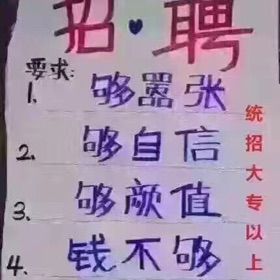 招·聘
要求:
1. 够嚣张
2. 够自信
3. 够颜值
4. 钱不够
统招大专以上